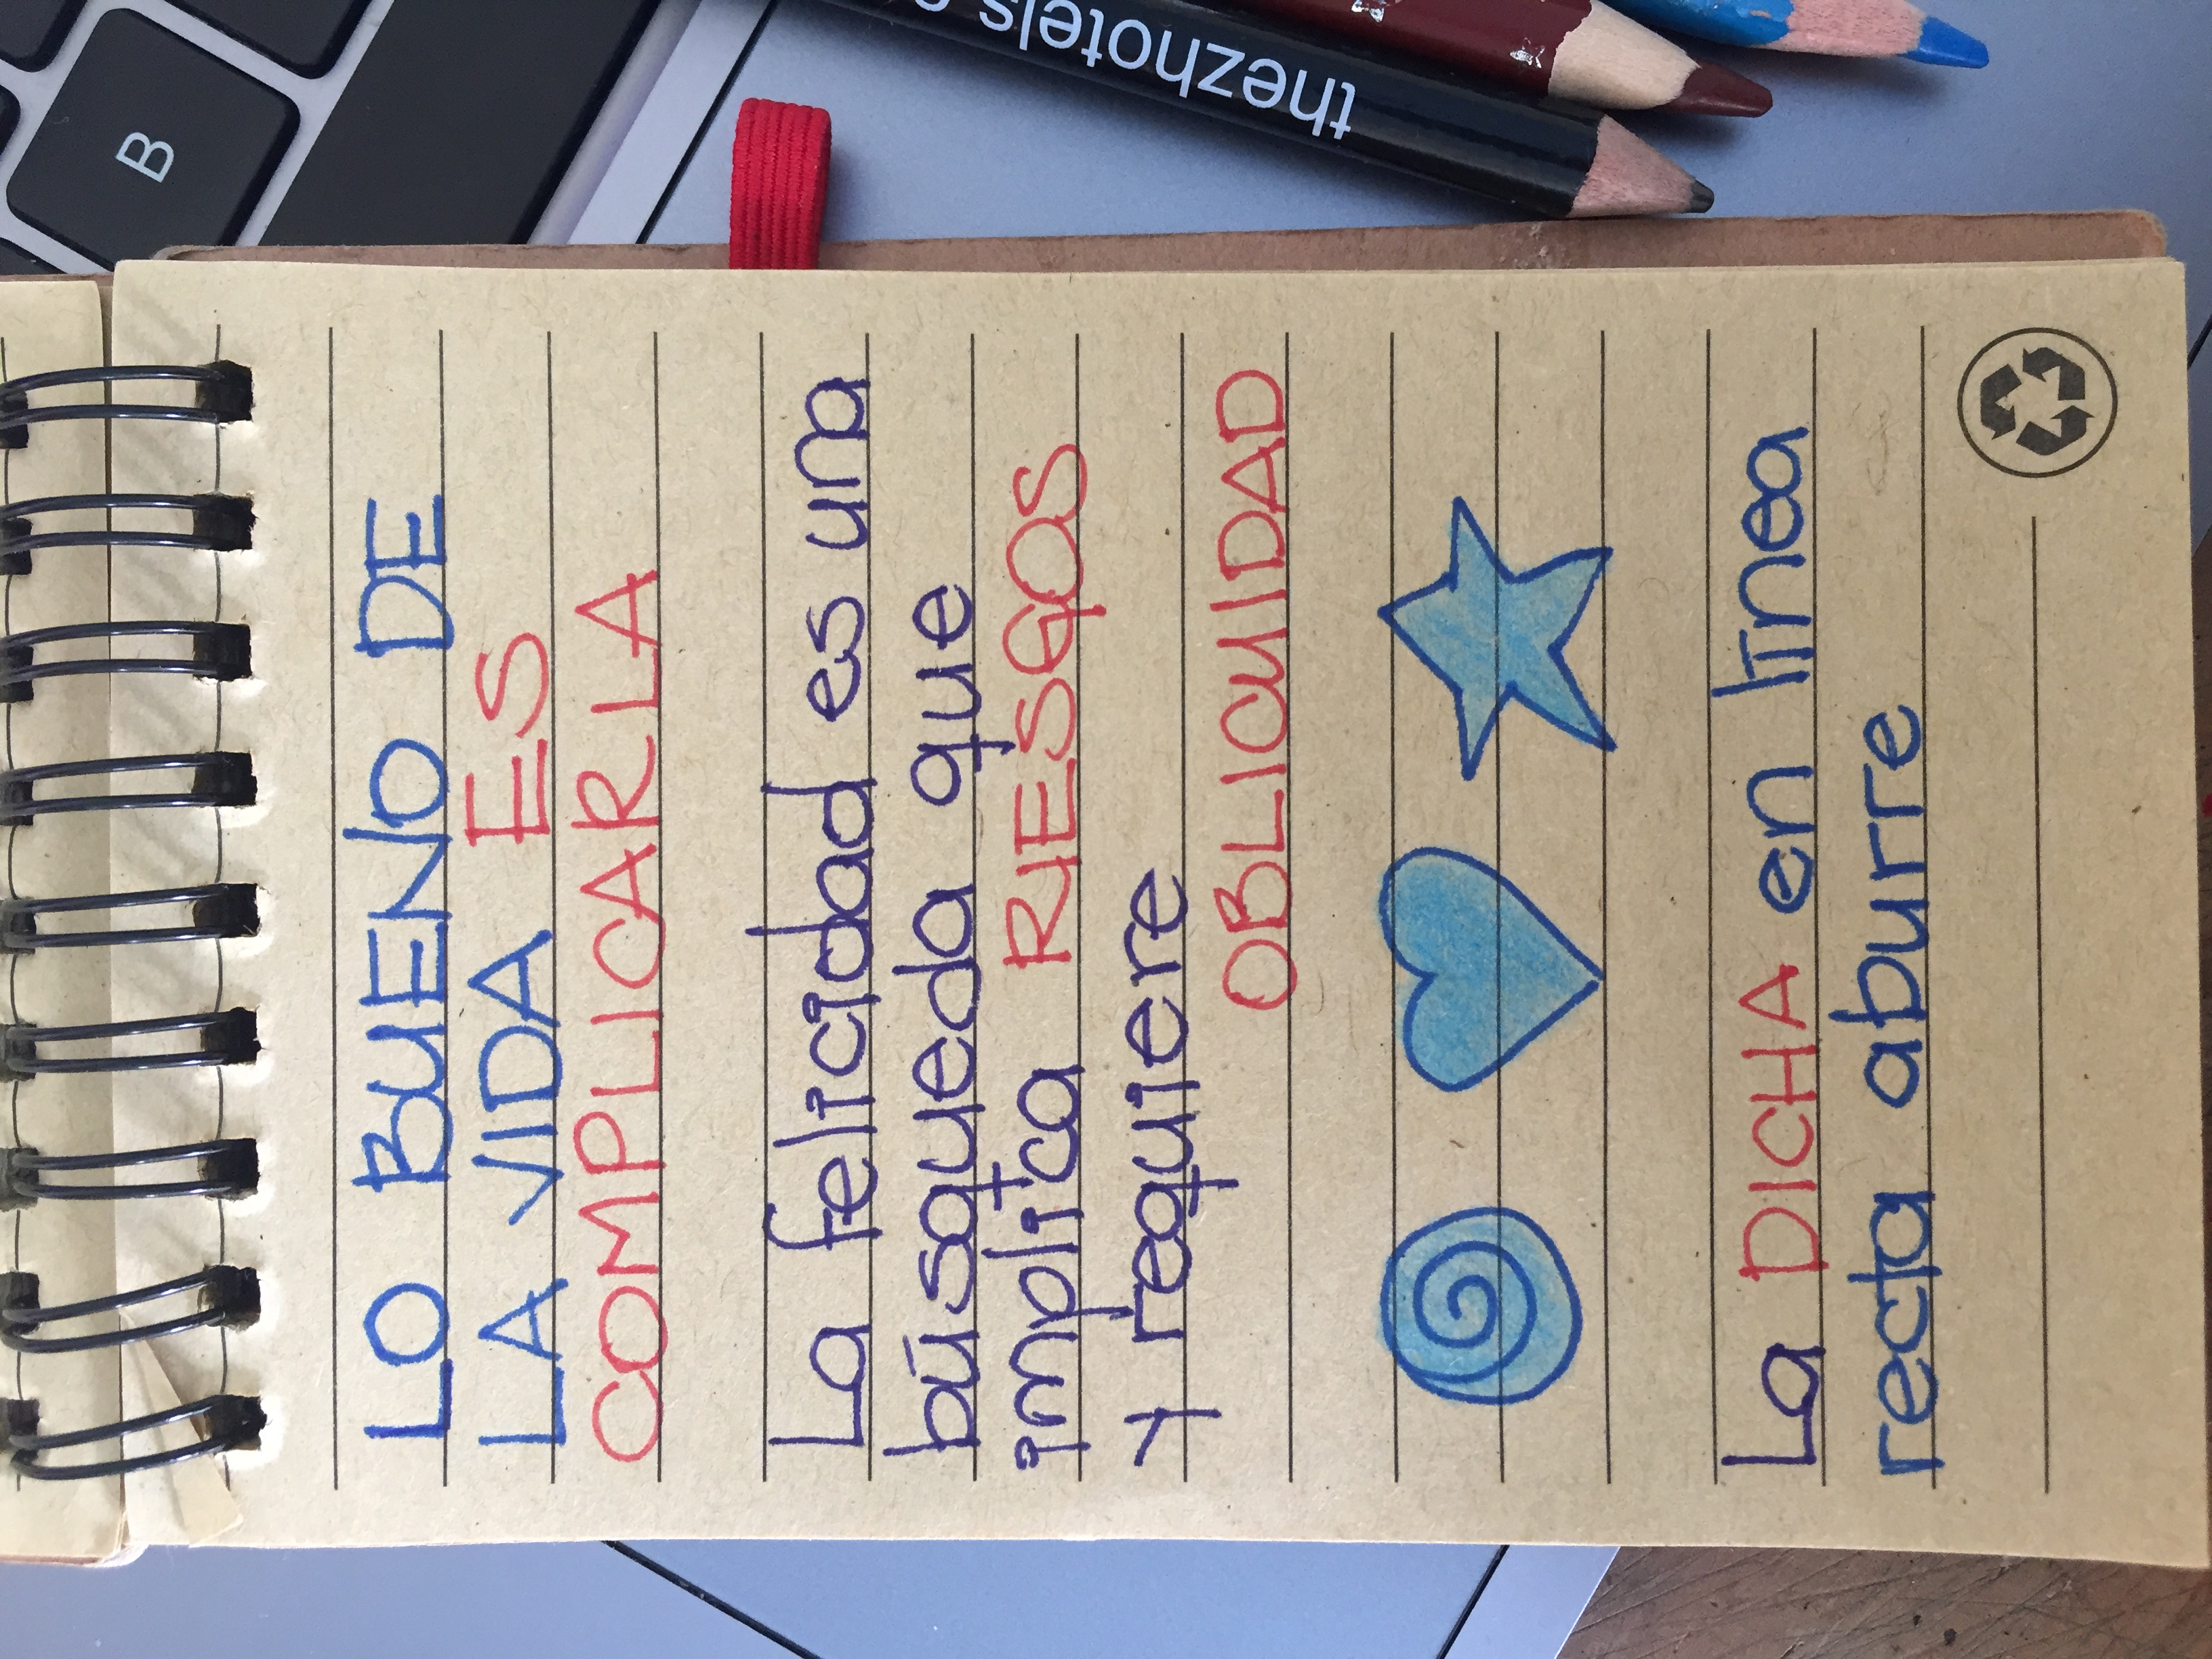 B
LO BUENO DE
LA VIDA ES
COMPLICARLA
La felicidad es una
búsqueda que
implica RIESGOS
y requiere
OBLICUIDAD
La DICHA en línea
recta aburre
thezhotels.